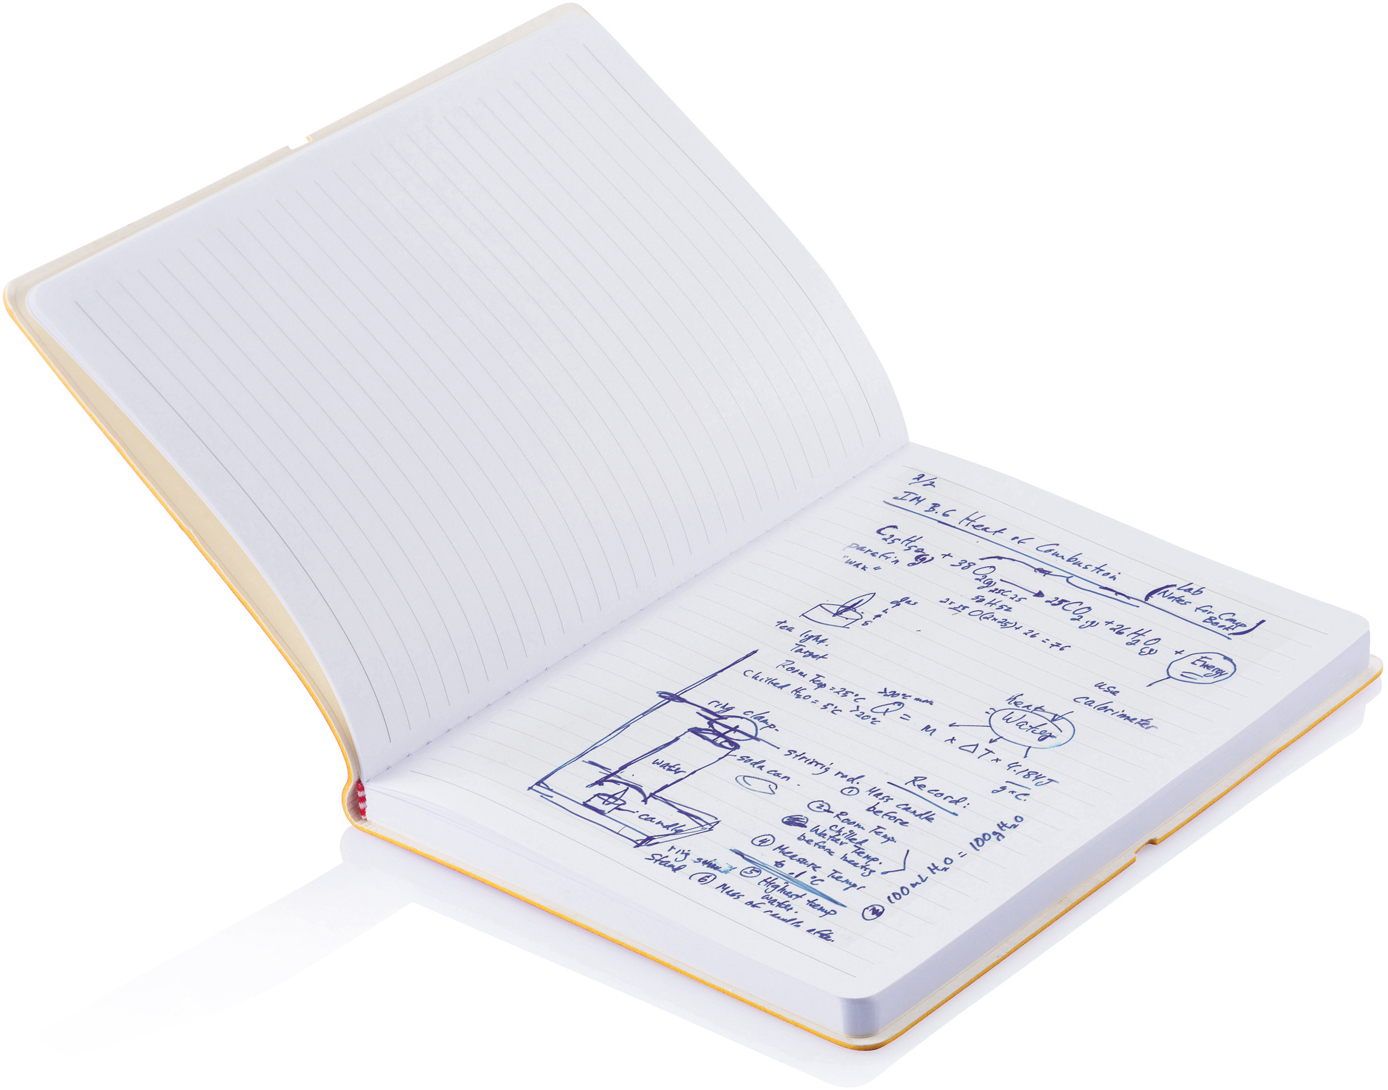 2/2
IM B.6 Heat of Combustion
(Lab Notes for Comp Book)
C25H52(g) + 38 O2(g) → 25CO2(g) + 26H2O(g) + Energy
parafin "wax"
25C 25
52 H 52
2×25 O(2×25)+26=76
gas
tea light.
Target
Room Temp = 25°C >20°C
Chilled H2O = 5°C >20°C
Q = m × ΔT × 4.184J/g×C.
heat
Water
use calorimeter
ring clamp.
stirring rod.
soda can
water
candle
ring stand
Record:
① Mass candle before
② Room Temp
Chilled Water Temp. before heating
④ Measure Temps to .1°C
⑤ Highest temp water.
⑥ Mass of candle after.
100mL H2O = 100g H2O